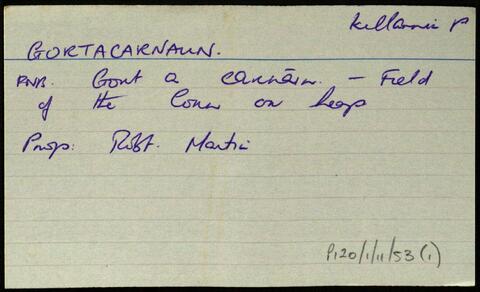 Killannin P
GORTACARNAUN.
PNB. Gort a carnáin. - Field
of the Conn or heap
Prop: Robt. Martin
P120/1/11/53 (1)